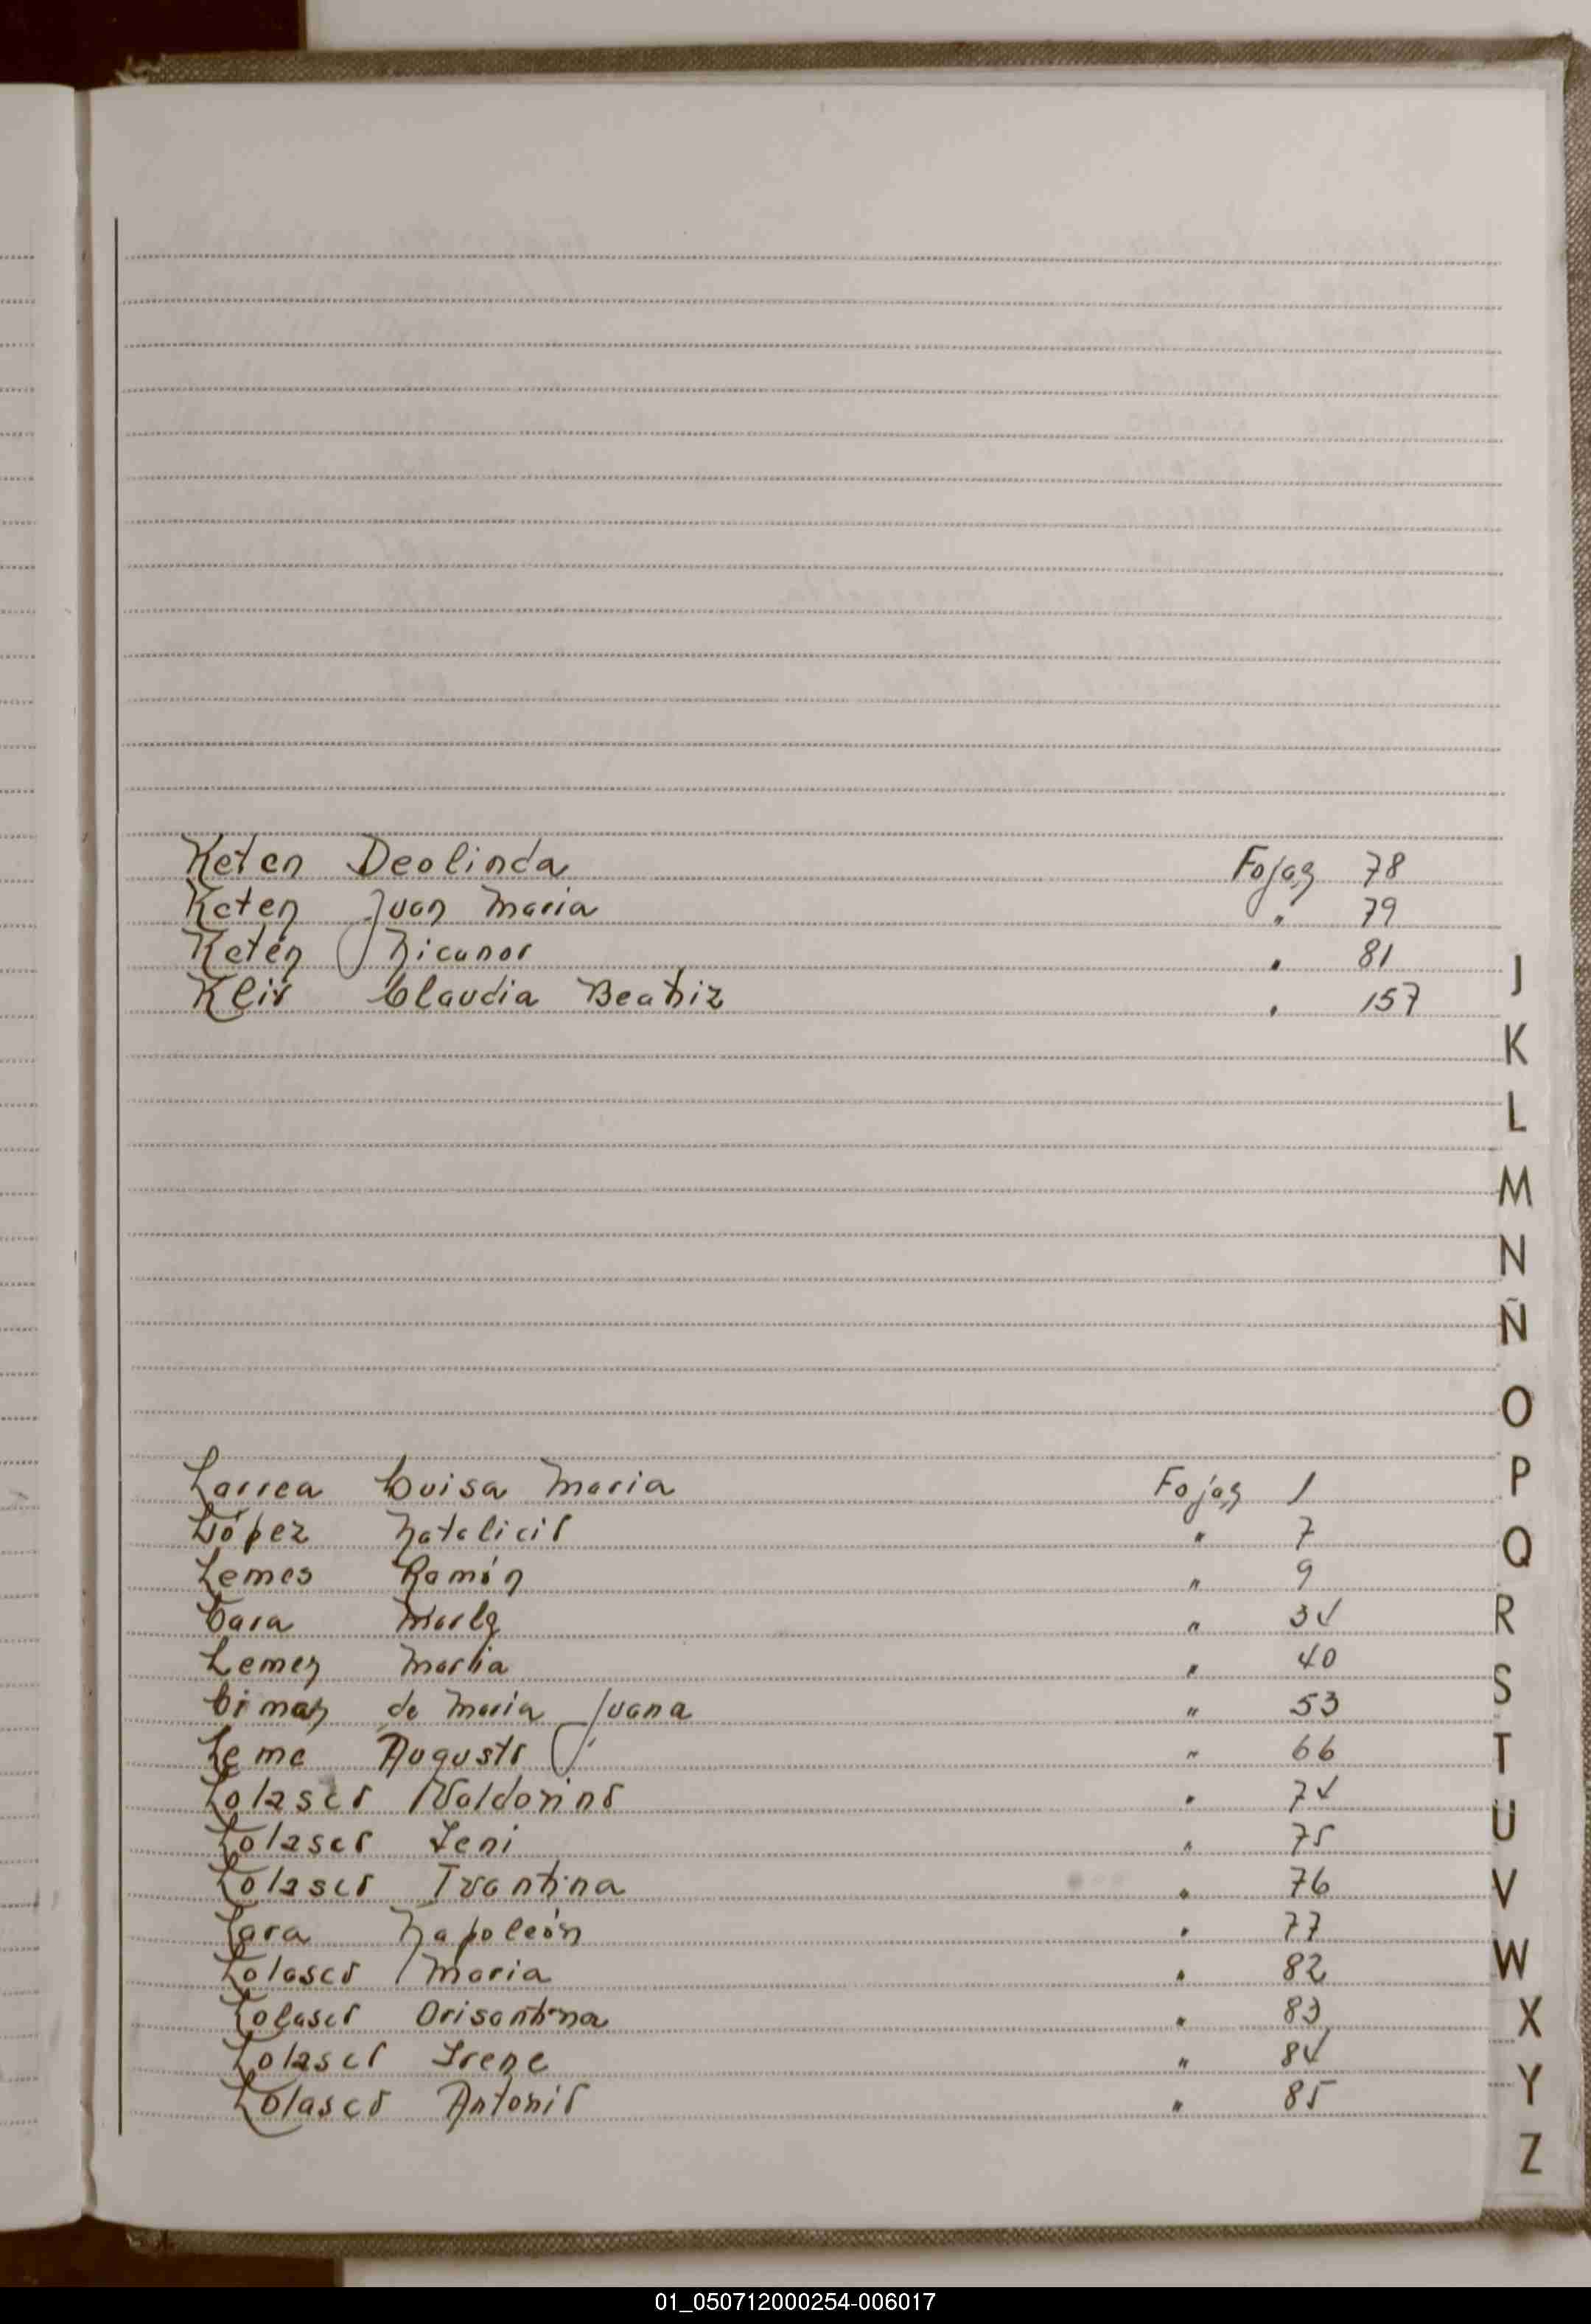 Keten Deolinda Fojas 78
Keten Juan Maria " 79
Keten Nicanor " 81
Klis Claudia Beatriz " 157
J
K
L
M
N
Ñ
O
P
Q
R
S
T
U
V
W
X
Y
Z
Larrea Luisa Maria Fojas 1
López Natalicio " 7
Lemes Ramón " 9
Lara " 34
Lemes Maria " 40
Limas de Maria Juana " 53
Leme Augusto " 66
Colasco Valdorino " 74
Colasco Leni " 75
Colasco " 76
Lara Napoleón " 77
Colasco Maria " 82
Colasco Orisontina " 83
Colasco Irene " 84
Colasco Antonio " 85
01_050712000254-006017